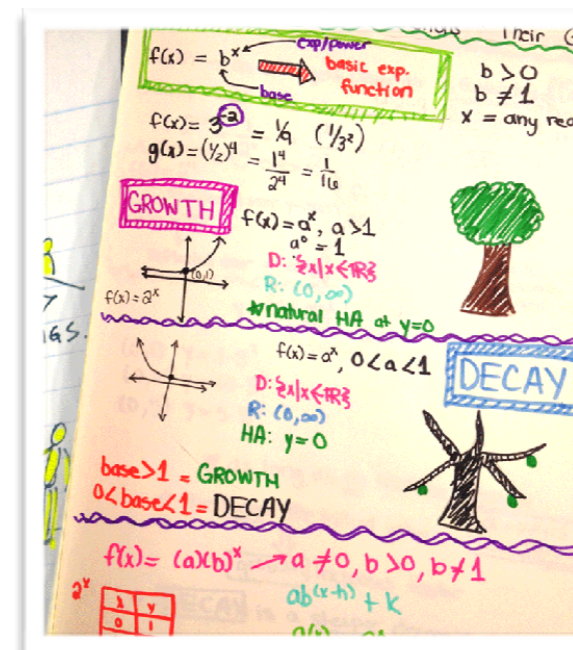 Their
exp/power
f(x) = b^x
basic exp.
function
base
b > 0
b ≠ 1
x = any
f(x) = 3^-2 = 1/9 (1/3²)
g(x) = (1/2)^4 = 1^4/2^4 = 1/16
GROWTH
f(x) = a^x, a > 1
a^0 = 1
D: {x|x∈ℝ}
R: (0, ∞)
*natural HA at y=0
(0,1)
f(x) = 2^x
GS.
f(x) = a^x, 0 < a < 1
DECAY
D: {x|x∈ℝ}
R: (0, ∞)
HA: y = 0
base > 1 = GROWTH
0 < base < 1 = DECAY
f(x) = (a)(b)^x → a ≠ 0, b > 0, b ≠ 1
ab^(x-h) + k
2^x
x y
0 1